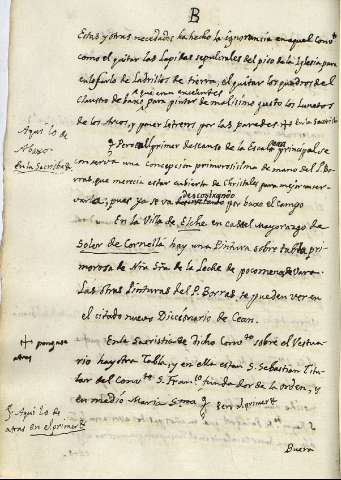 B
Estas y otras necedades ha hecho la ignorancia en aquel Convto
como el quitar las lapidas sepulcrales del piso de la Iglesia para
enlosarlo de ladrillos de tierra, el quitar los quadros del
que eran excelentes
Claustro de para pintar de malisimo gusto los Lunetos
de los Arcos, y poner letreros por las paredes + En la Sacristia
Aqui lo de
Abaxo
En la Sacristia
Pero al primer descanso de la Escalera principal se
conserva una Concepcion primorosisima de mano del P. Bor-
ras, que merecia estar cubierta de Christales para mejor conser-
descostrando
varla, pues ya se va por baxo el campo
En la Villa de Elche en casa del Mayorazgo de
Soler de Cornellá hay una Pintura sobre tabla pri-
morosa de Nra Sra de la Leche de poco menos de Vara
Las otras Pinturas del P. Borras, se pueden ver en
el citado nuevo Diccionario de Cean.
+ pongase
atras
En la Sacristia de dicho Convto sobre el Vestua-
rio hay otra Tabla, y en ella estan S. Sebastian Titu-
lar del Convto S. Franco fundador de la orden, y
en medio Maria Sma
Aqui lo de
atras en el primer
Buera